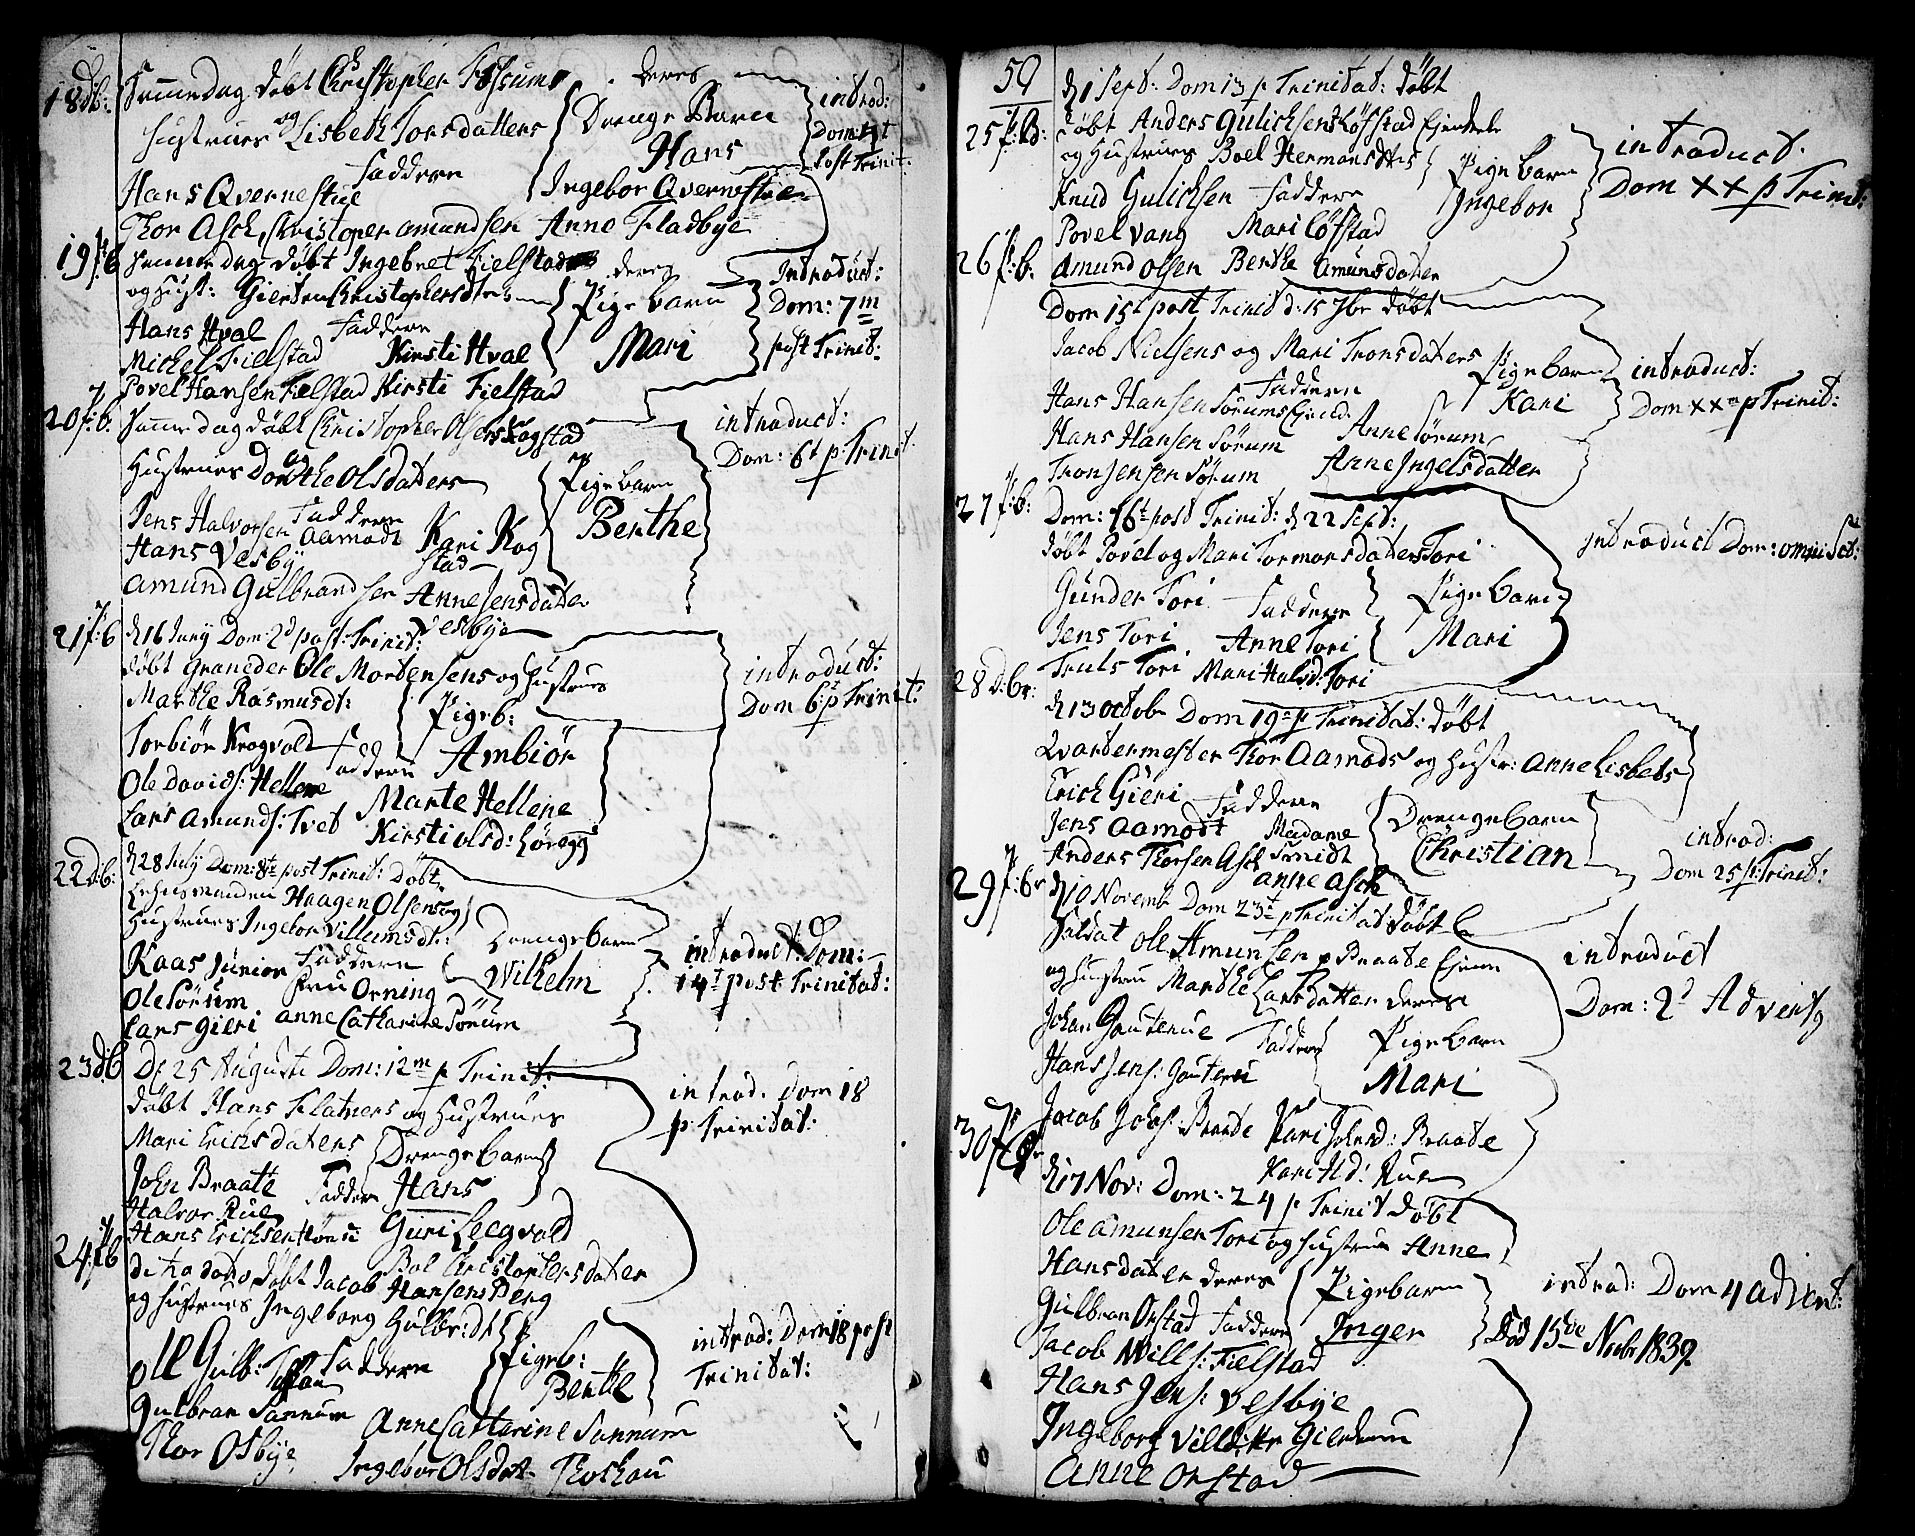 18 db:
Samme dag døbt Christopher Fossums
Hustrues og Lisbeth Torsdatters
deres
Drenge Barn
Hans
introd:
Dom 4t
Post Trinit:
Faddere
Hans Qvernestue
Ingebor Qvernestuen
Thor Asch, Christopher Amundsen Anne Fladbye
19 p:b
Samme dag døbt Ingebret Fielstad
deres
og Hust: Giertru Christophersdter
Pige barn
Mari
Introduct:
Dom: 7m
post Trinit:
Hans Hval Faddere
Michel Fielstad Kirsti Hval
Povel Hansen Fielstad Kirsti Fielstad
20 p:b:
Samme dag døbt Christopher Olsen Kogstad
Hustrues og Dorthe Olsdatters
en
Pige barn
Berthe
introduct:
Dom: 6t p: Trinit
Jens Halvorsen Faddere
Aamodt
Hans Vesby
Kari Kog
stad
Amund Gulbrandsen Anne Jensdatter
Vesbye
21 p:b
d 16 Juny Dom: 2d post: Trinit:
døbt Graneder Ole Mortensens og Hustrues
Marthe Rasmusdt:
Pigeb:
Ambiør
introduct:
Dom 6: p Trinit:
Torbiør Krogvold Faddere
Ole Davids: Hellene
Marte Hellene
Lars Amunds: Tvet Kirsti Olsd: Løregg
22 d:b:
d 28 July Dom: 8te post Trinit: Døbt
Lehnsmanden Haagen Olsens og
Hustrues Ingebor Villumsdt:
Drenge barn
Wilhelm
introduct: Dom:
14t post Trinitat:
Kaas Junior Faddere
Ole Sørum Fru Orning
Lars Gieri Anne Catharine Sørum
23 d:b
D: 25 Augusti Dom: 12m p Trinit:
døbt Hans Flatners og Hustrues
Mari Erichsdaters
Drenge barn
Hans
introd. Dom 18
p: Trinitat:
John Braate
Halvor Rue Faddere
Hans Erichsen Hønsi Guri Leegvold
Boel Christophersdater
24 p:b
dito dato døbt Jacob Hansens Berg
og Hustrues Ingeborg Gulbr: dt
Pigeb:
Berthe
introd: Dom 18 post
Trinitat:
Ole Gulb: Faddere
Gulbran Sannum
Anne Catharine Sannum
Thor Osbye, Ingebor Olsdat: Thoshau
59
25 p:b:
d 1 Sept: Dom 13 p Trinitat: døbt
døbt Anders Gulichsens Løfstad Ejendele
og Hustrues Boel Hermansdts
Pige barn
Ingebor
introduct.
Dom XX p Trinit:
Knud Gulichsen Faddere
Povel Vang Mari Løfstad
Amund Olsen Berthe Amunsdatter
26 p:b.
Dom 15t post Trinit d: 15 7br døbt
Jacob Nielsens og Mari Tronsdaters
Pige barn
Kari
introduct:
Dom XXa p Trinit:
Faddere
Hans Hansen Sørums Eiend:
Hans Hansen Sørum Anne Sørum
Tron Jensen Sørum Anne Ingelsdatter
27 p:b:
Dom: 16t post Trinit: d 22 Sept:
døbt Povel og Mari Tormorsdaters Tori
Pige barn
Mari
introduct Dom: omni Sct:
Gunder Tori Faddere
Jens Tori Anne Tori
Truls Tori Mari Halvd: Tori
28 d:br:
d 13 Octobr Dom 19 p Trinitat: døbt
Qvartermester Thor Aamods og Hustr: Anne Lisbets
Drenge barn
Christian
introd:
Dom 25 p: Trinit:
Erich Gieri Faddere
Jens Aamodt Madame
Smidt
Anders Thorsen Asch
Anne Asch
29 p:br
d 10 Novemb Dom 23t p Trinitat døbt
Soldat Ole Amunsen p Braate Ejeren
og Hustru Marthe Larsdatter deres
Pige barn
Mari
introduct
Dom: 2d Advents
Johan Gouterue Faddere
Hans Jens: Gouterue
Jacob Johs: Braate Kari Johsd: Braate
Kari Hd: Rue
30 p:br
d 17 Nov: Dom: 24 p Trinit døbt
Ole Amunsen Tori og Hustrue Anne
Hansdater deres
Pigebarn
Inger
introd: Dom 4 Advent:
Død 15de Novbr 1839.
Gulbran Orstad Faddere
Jacob Will: Fielstad
Hans Jens: Vesbye
Ingeborg Villd:ttr Gierdrum
Anne Orstad